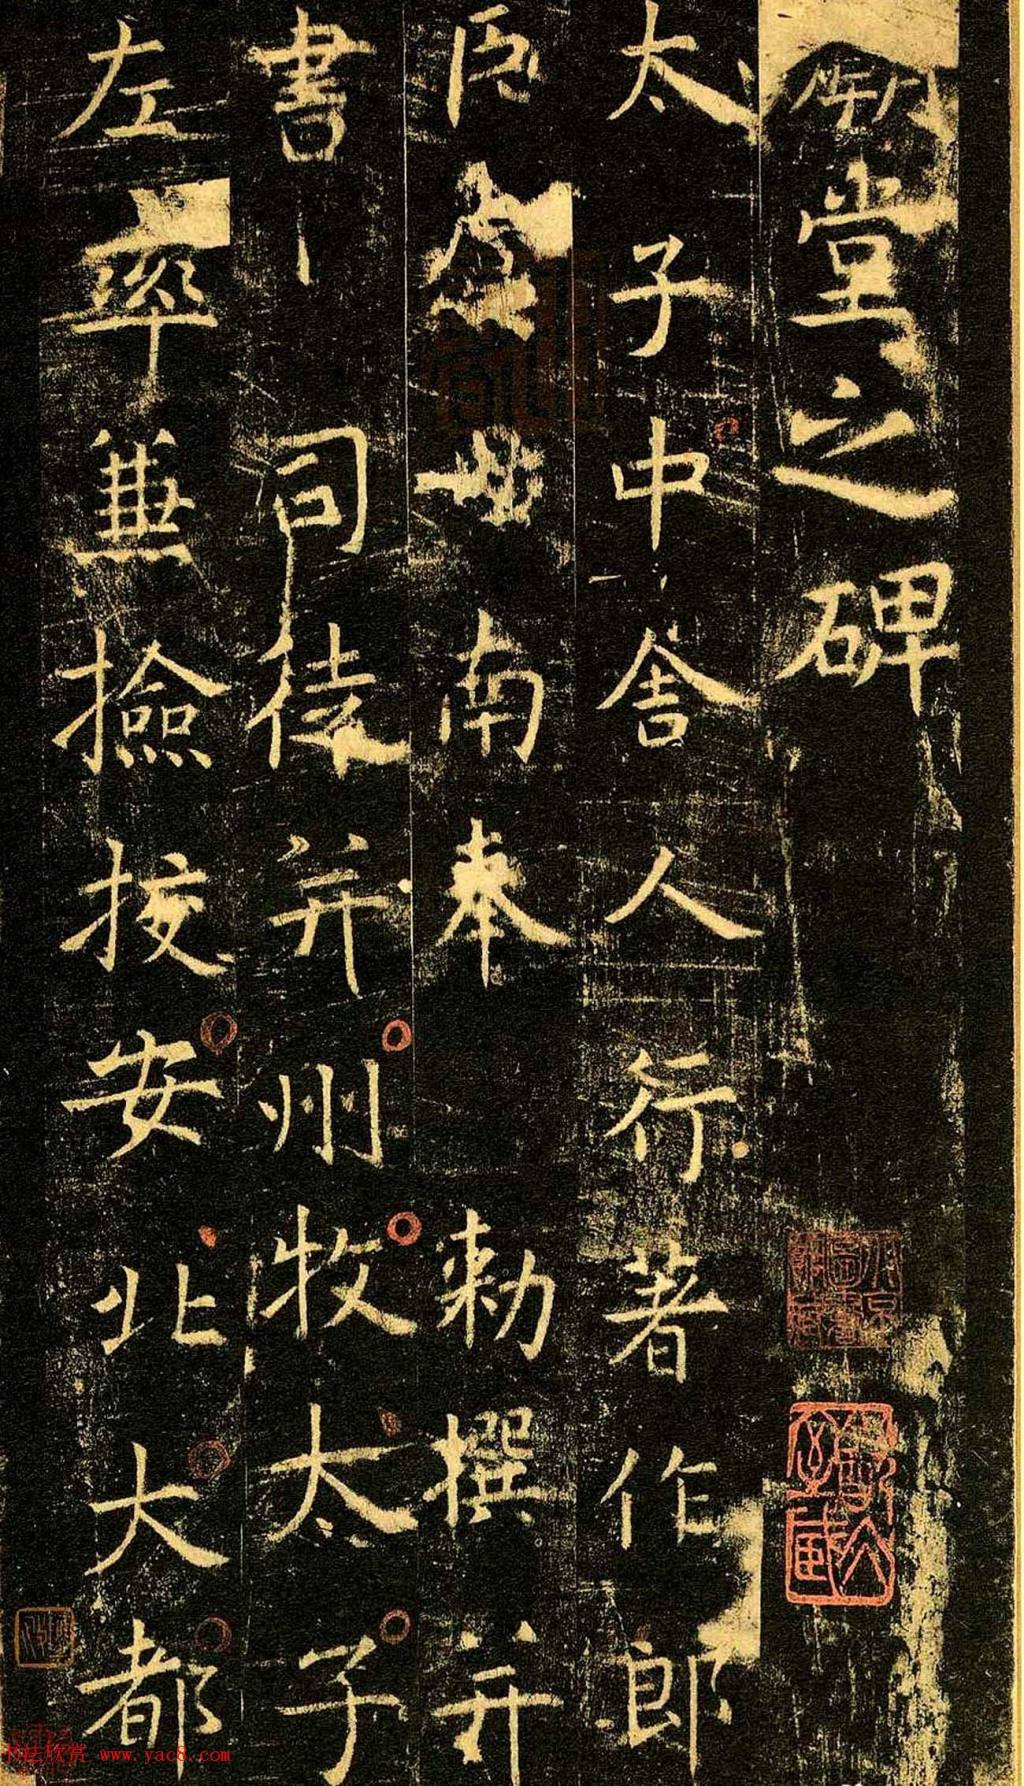 堂之碑
太子中舍人行著作郎
臣虞世南奉勅撰并
書司徒并州牧太子
左率兼撿挍安北大都
书法欣赏 www.yac8.com